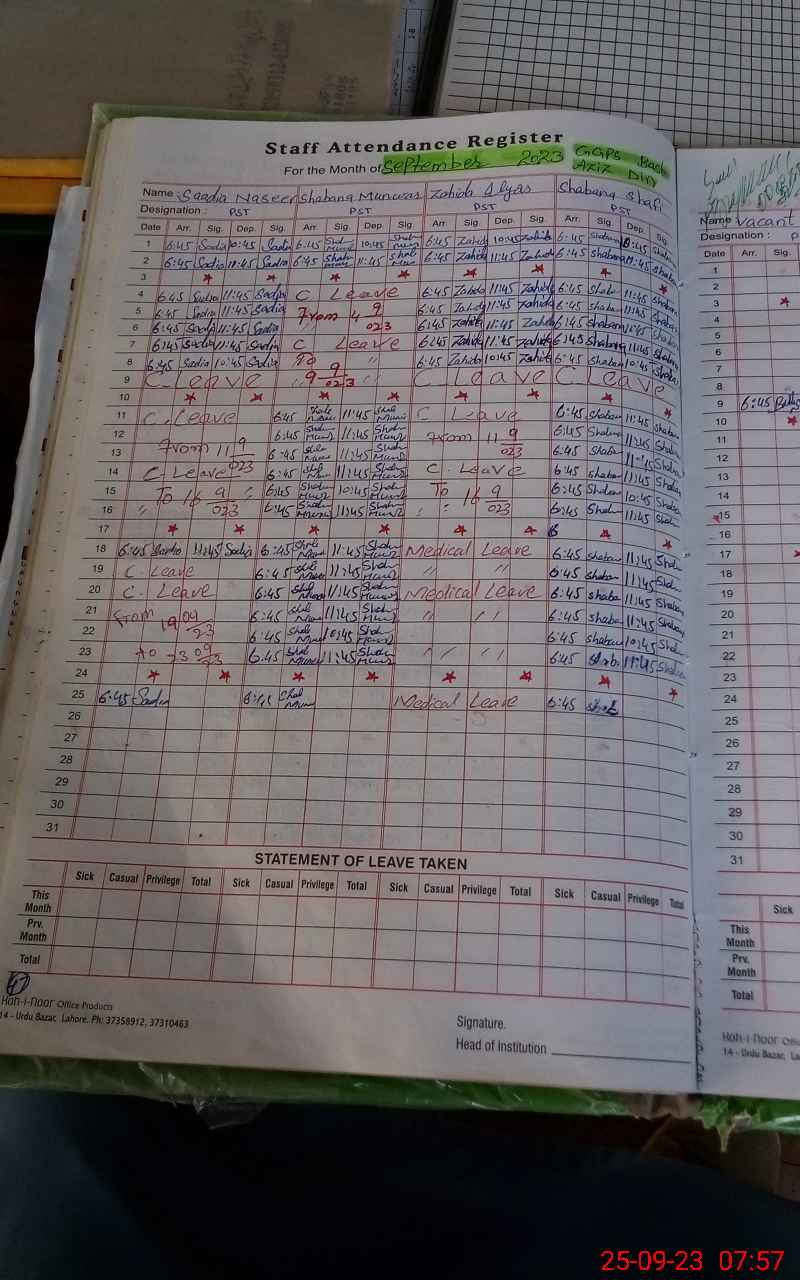 Staff Attendance Register
For the Month of September 2023 GGPS Bach Aziz Din
Name: Saadia Naseer Shabana Munwas Zahida Ilyas Shabana Shafi
Designation: PST PST PST PST
Date Arr. Sig. Dep. Sig. Arr. Sig. Dep. Sig. Arr. Sig. Dep. Sig. Arr. Sig. Dep. Sig.
1 6:45 Sadia 10:45 Sadia 6:45 10:45 6:45 Zahida 10:45 Zahida 6:45 Shabana 10:45 Shabana
2 6:45 Sadia 11:45 Sadia 6:45 11:45 6:45 Zahida 11:45 Zahida 6:45 Shabana 11:45 Shabana
3
4 6:45 Sadia 11:45 Sadia C Leave 6:45 Zahida 11:45 Zahida 6:45 Shaban 11:45 Shaban
5 6:45 Sadia 11:45 Sadia From 4 9/023 6:45 Zahida 11:45 Zahida 6:45 Shaban 11:45 Shaban
6 6:45 Sadia 11:45 Sadia " 6:45 Zahida 11:45 Zahida 6:45 Shaban 11:45 Shaban
7 6:45 Sadia 11:45 Sadia C Leave 6:45 Zahida 11:45 Zahida 6:45 Shaban 11:45 Shaban
8 6:45 Sadia 10:45 Sadia To " 6:45 Zahida 10:45 Zahida 6:45 Shaban 10:45 Shaban
9 C. Leave " 9-9/023 " C. Leave C. Leave
10
11 C. Leave 6:45 11:45 C Leave 6:45 Shaban 11:45 Shaban
12 From 11 9/023 6:45 11:45 From 11 9/023 6:45 Shaban 11:45 Shaban
13 6:45 11:45 6:45 Shaban 11:45 Shaban
14 C. Leave 6:45 11:45 C. Leave 6:45 Shaban 11:45 Shaban
15 To 16 9/023 6:45 10:45 To 16 9/023 6:45 Shaban 10:45 Shaban
16 " 6:45 11:45 " 6:45 Shaban 11:45 Shaban
17
18 6:45 Sadia 11:45 Sadia 6:45 11:45 Medical Leave 6:45 Shaban 11:45 Shaban
19 C. Leave 6:45 11:45 " " 6:45 Shaban 11:45 Shaban
20 C. Leave 6:45 11:45 Medical Leave 6:45 Shaban 11:45 Shaban
21 From 19 09/23 6:45 11:45 " " 6:45 Shaban 11:45 Shaban
22 6:45 10:45 6:45 Shaban 10:45 Shaban
23 to 23 09/23 6:45 11:45 " " 6:45 11:45
24
25 6:45 Sadia 6:45 Medical Leave 6:45
26
27
28
29
30
31
STATEMENT OF LEAVE TAKEN
Sick Casual Privilege Total Sick Casual Privilege Total Sick Casual Privilege Total Sick Casual Privilege Total
This Month
Prv. Month
Total
47
Koh-i-Noor Office Products
14 - Urdu Bazar, Lahore. Ph: 37358912, 37310463
Signature.
Head of Institution
Name Vacant
Designation :
Date Arr. Sig.
1
2
3
4
5
6
7
8
9 6:45
10
11
12
13
14
15
16
17
18
19
20
21
22
23
24
25
26
27
28
29
30
31
Sick
This Month
Prv. Month
Total
Koh-i-Noor
14 - Urdu Bazar,
25-09-23 07:57